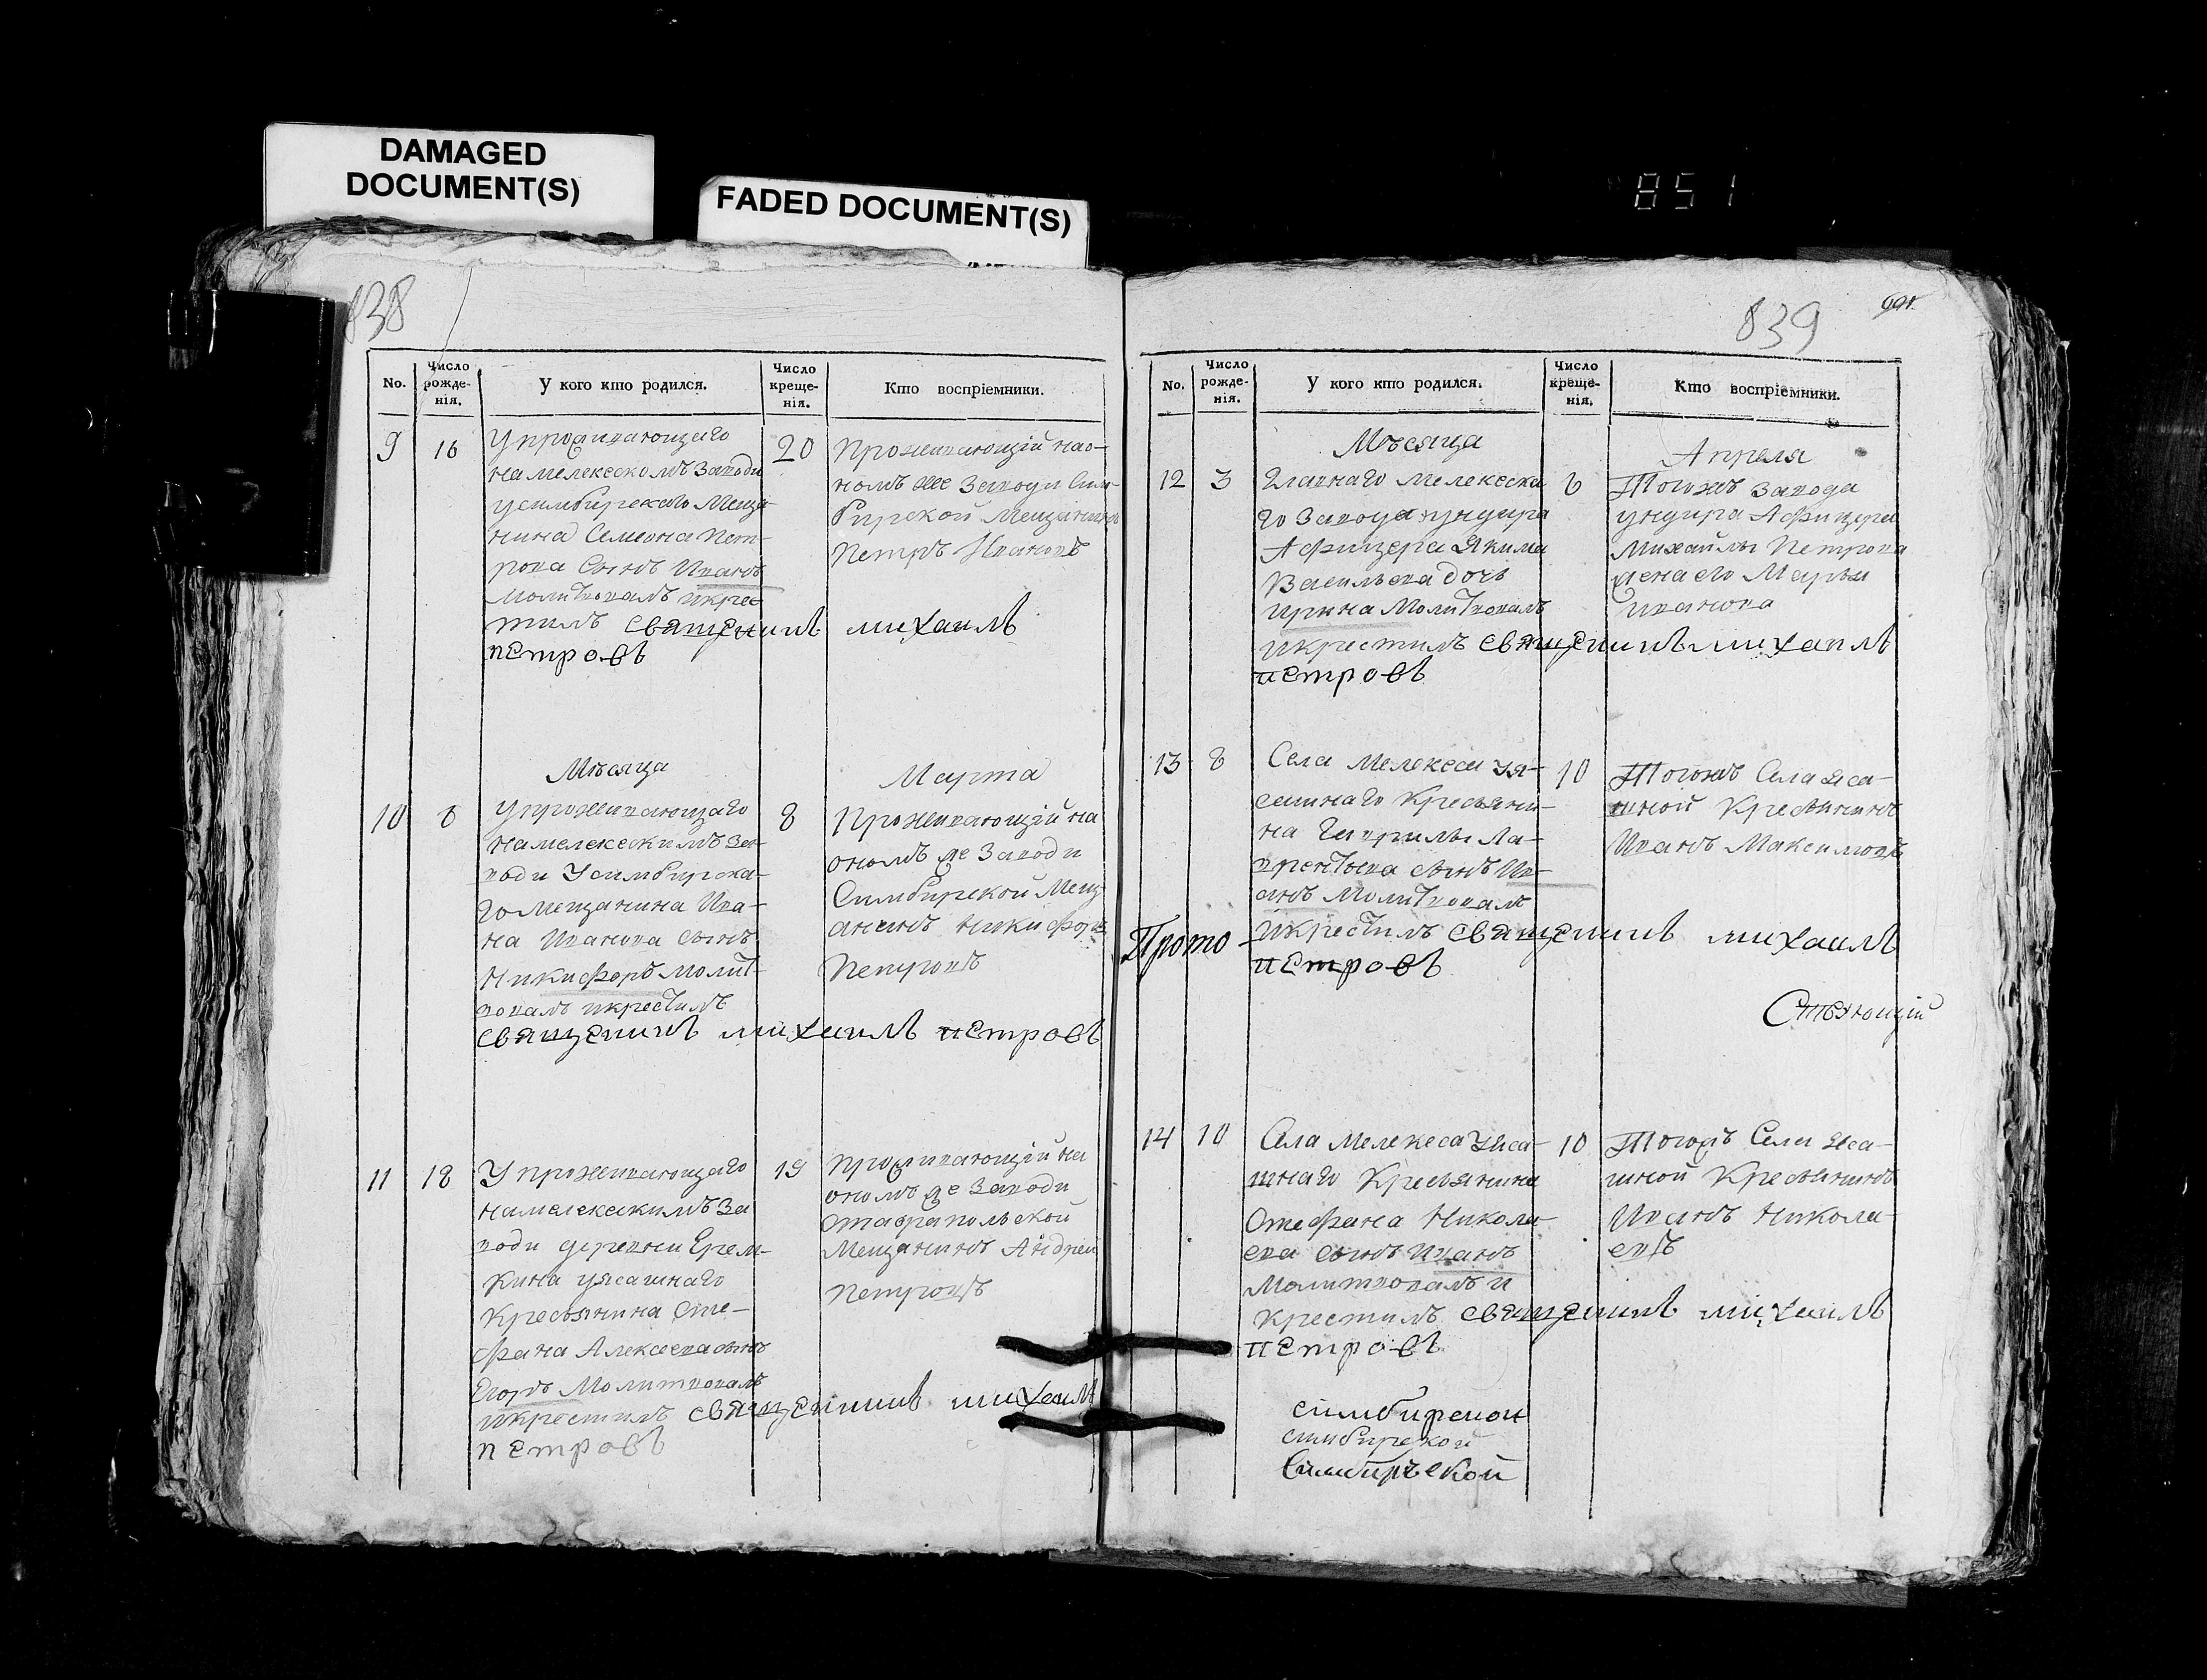 DAMAGED
DOCUMENT(S)
FADED DOCUMENT(S)
851
838
No.
Число рожде-нія.
У кого кто родился.
Число креще-нія.
Кто воспріемники.
9
16
Упроживающаго
на мелекескомъ Заводи
усимбирскаго Меща-
нина Семиона Пет-
рова Сынъ Иванъ
Молитвовалъ икрес
тилъ священникъ михаилъ
петровъ
20
Проживающій нао-
номъ же Заводи Сим-
бирской Мещанинъ
Петръ Ивановъ
Мѣсяца
Марта
10
8
Упроживающаго
на мелекескимъ За-
води Усимбирска-
го мещанина Ива-
на Иванова сынъ
Никифоръ молит-
вовалъ икрестилъ
священникъ михаилъ петровъ
8
Проживающій на
ономъ же Заводи
Симбирской Мещ-
анинъ Никифоръ
Петровъ
11
18
Упроживающаго
на мелекескимъ За
води деревни Ерем-
кина уясашнаго
Крестьянина Сте-
фана Алексеева сынъ
Егоръ Молитвовалъ
икрестилъ священникъ михаилъ
петровъ
19
Проживающій на
ономъ же Заводи
Ставрапольской
Мещанинъ Андреи
Петровъ
839
No.
Число рожде-нія.
У кого кто родился.
Число креще-нія.
Кто воспріемники.
Мѣсяца
Апреля
12
3
Главнаго Мелекеска
го Завода ундира
Афицера Якима
Васильева дочь
Ирина Молитвовалъ
икрестилъ священникъ михаилъ
петровъ
6
Тогожъ Завода
ундира Афицера
Михайлы Петрова
жена его Марья
Иванова
13
8
Села Мелекеса уя-
сашнаго Кресьяни-
на Гаврилы Ла-
врентьева сынъ Ив-
анъ Молитвовалъ
икрестилъ священникъ михаилъ
петровъ
10
Тогожъ Села яса-
шной Кресьянинъ
Иванъ Максимовъ
Прото
14
10
Села Мелекеса уяса-
шнаго Кресьянина
Стефана Никола-
ева сынъ Иванъ
Молитвовалъ и
крестилъ священникъ михаилъ
петровъ
10
Тогожъ Села яса-
шной Кресьянинъ
Иванъ Никола-
евъ
симбирской
симбирской
Симбирской